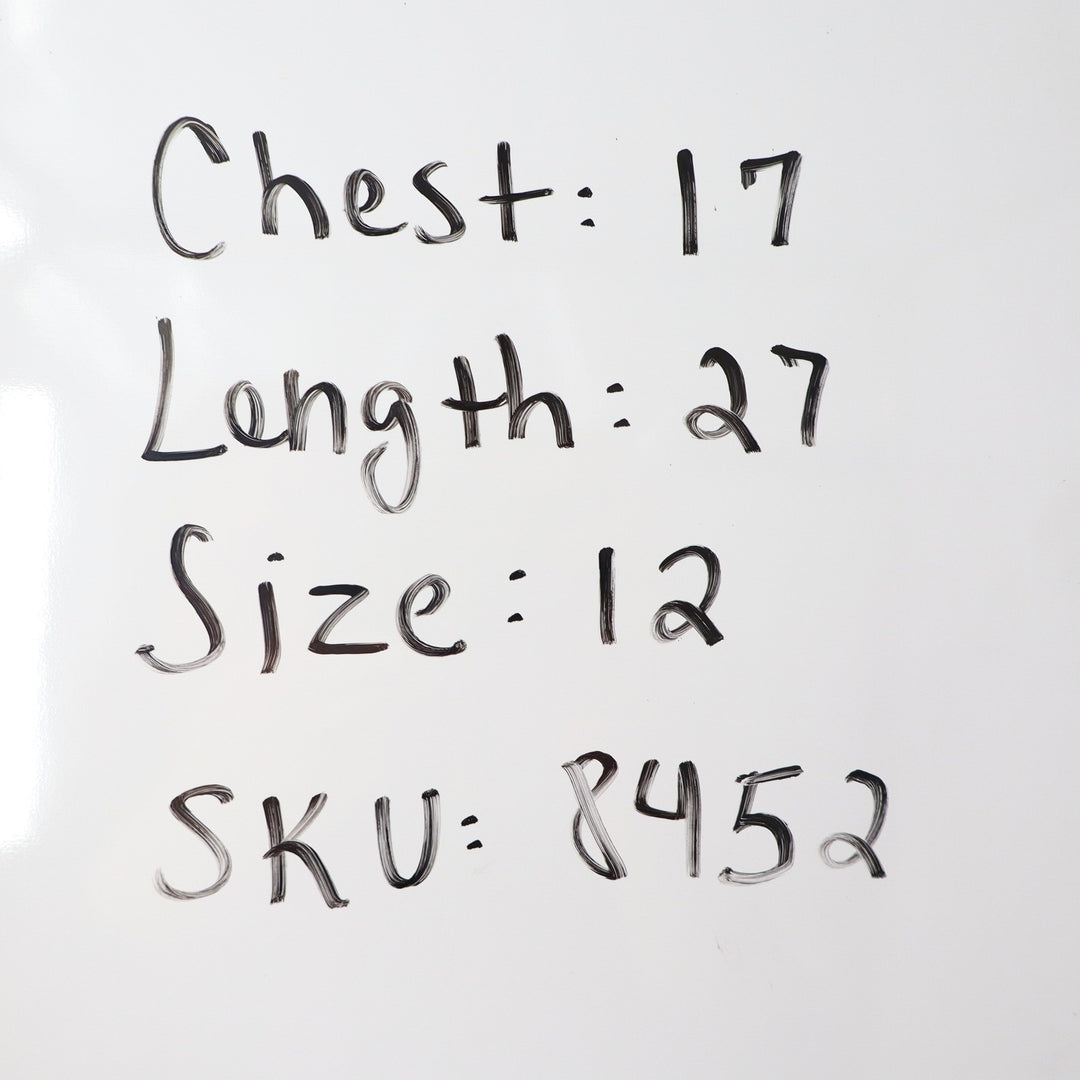 Chest: 17
Length: 27
Size: 12
SKU: 8452